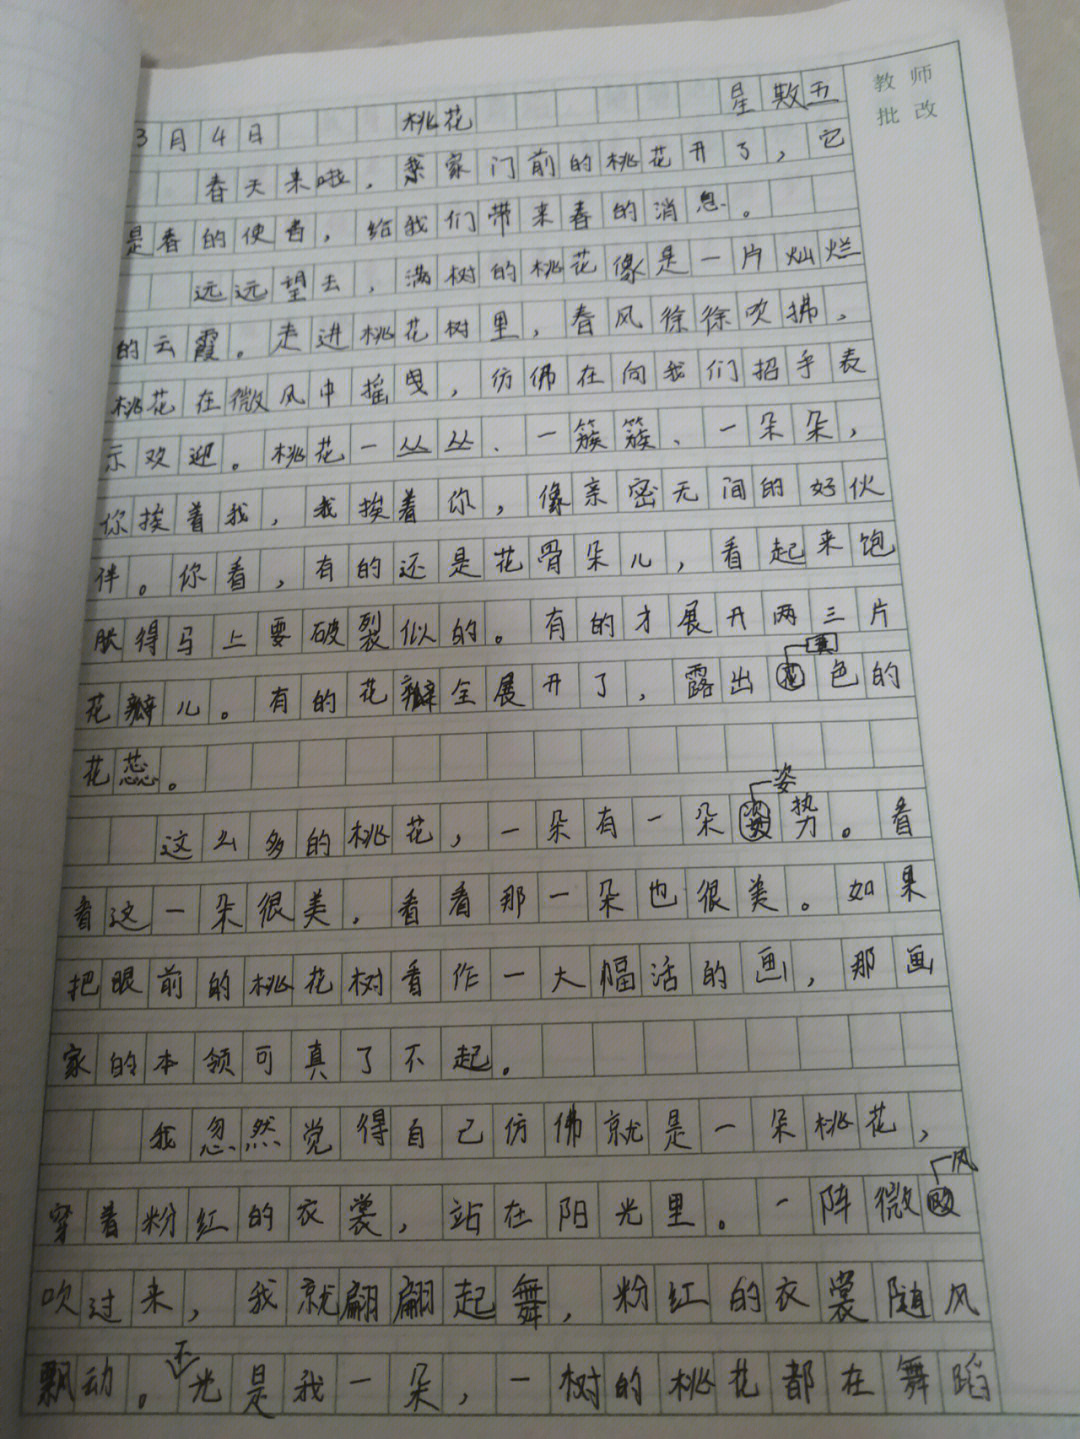 教师
批改
3月4日 桃花 星期五
春天来啦，我家门前的桃花开了，它
是春的使者，给我们带来春的消息。
远远望去，满树的桃花像是一片灿烂
的云霞。走进桃花树里，春风徐徐吹拂，
桃花在微风中摇曳，仿佛在向我们招手表
示欢迎。桃花一丛丛、一簇簇、一朵朵，
你挨着我，我挨着你，像亲密无间的好伙
伴。你看，有的还是花骨朵儿，看起来饱
胀得马上要破裂似的。有的才展开两三片
花瓣儿。有的花瓣全展开了，露出黄色的
花蕊。
这么多的桃花，一朵有一朵姿势。看
看这一朵很美，看看那一朵也很美。如果
把眼前的桃花树看作一大幅活的画，那画
家的本领可真了不起。
我忽然觉得自己仿佛就是一朵桃花，
穿着粉红的衣裳，站在阳光里。一阵微风
吹过来，我就翩翩起舞，粉红的衣裳随风
飘动。不光是我一朵，一树的桃花都在舞蹈